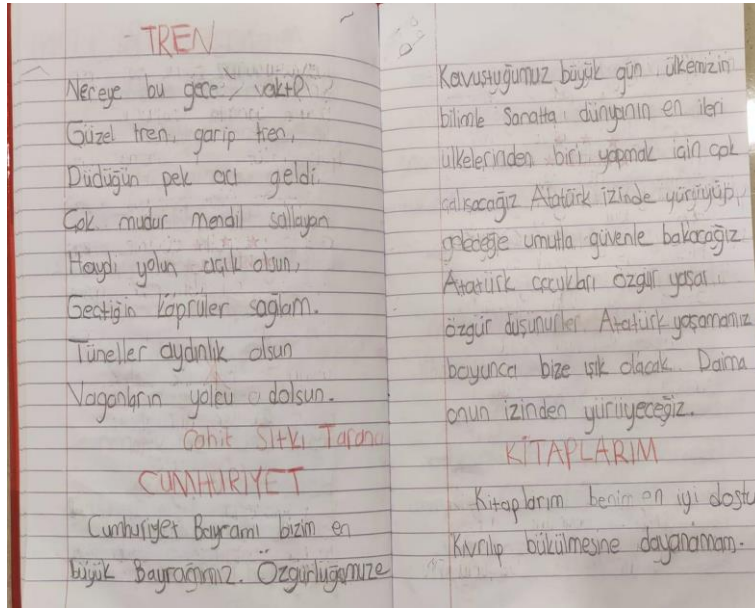 TREN
Nereye bu gece vakti?
Güzel tren, garip tren,
Düdüğün pek acı geldi.
Çok mudur mendil sallayan
Haydi yolun açık olsun,
Geçtiğin köprüler sağlam.
Tüneller aydınlık olsun
Vagonların yolcu dolsun.
Cahit Sıtkı Tarancı
CUMHURİYET
Cumhuriyet Bayramı bizim en
büyük Bayrağımız. Özgürlüğümüze
Kavuştuğumuz büyük gün ülkemizin
bilimle Sanatta dünyanın en ileri
ülkelerinden biri yapmak için çok
çalışacağız Atatürk izinde yürüyüp,
geleceğe umutla güvenle bakacağız.
Atatürk çocukları özgür yaşar
özgür düşünürler Atatürk yaşamamız
boyunca bize ışık olacak. Daima
onun izinden yürüyeceğiz.
KİTAPLARIM
Kitaplarım benim en iyi dostu
Kıvrılıp bükülmesine dayanamam.